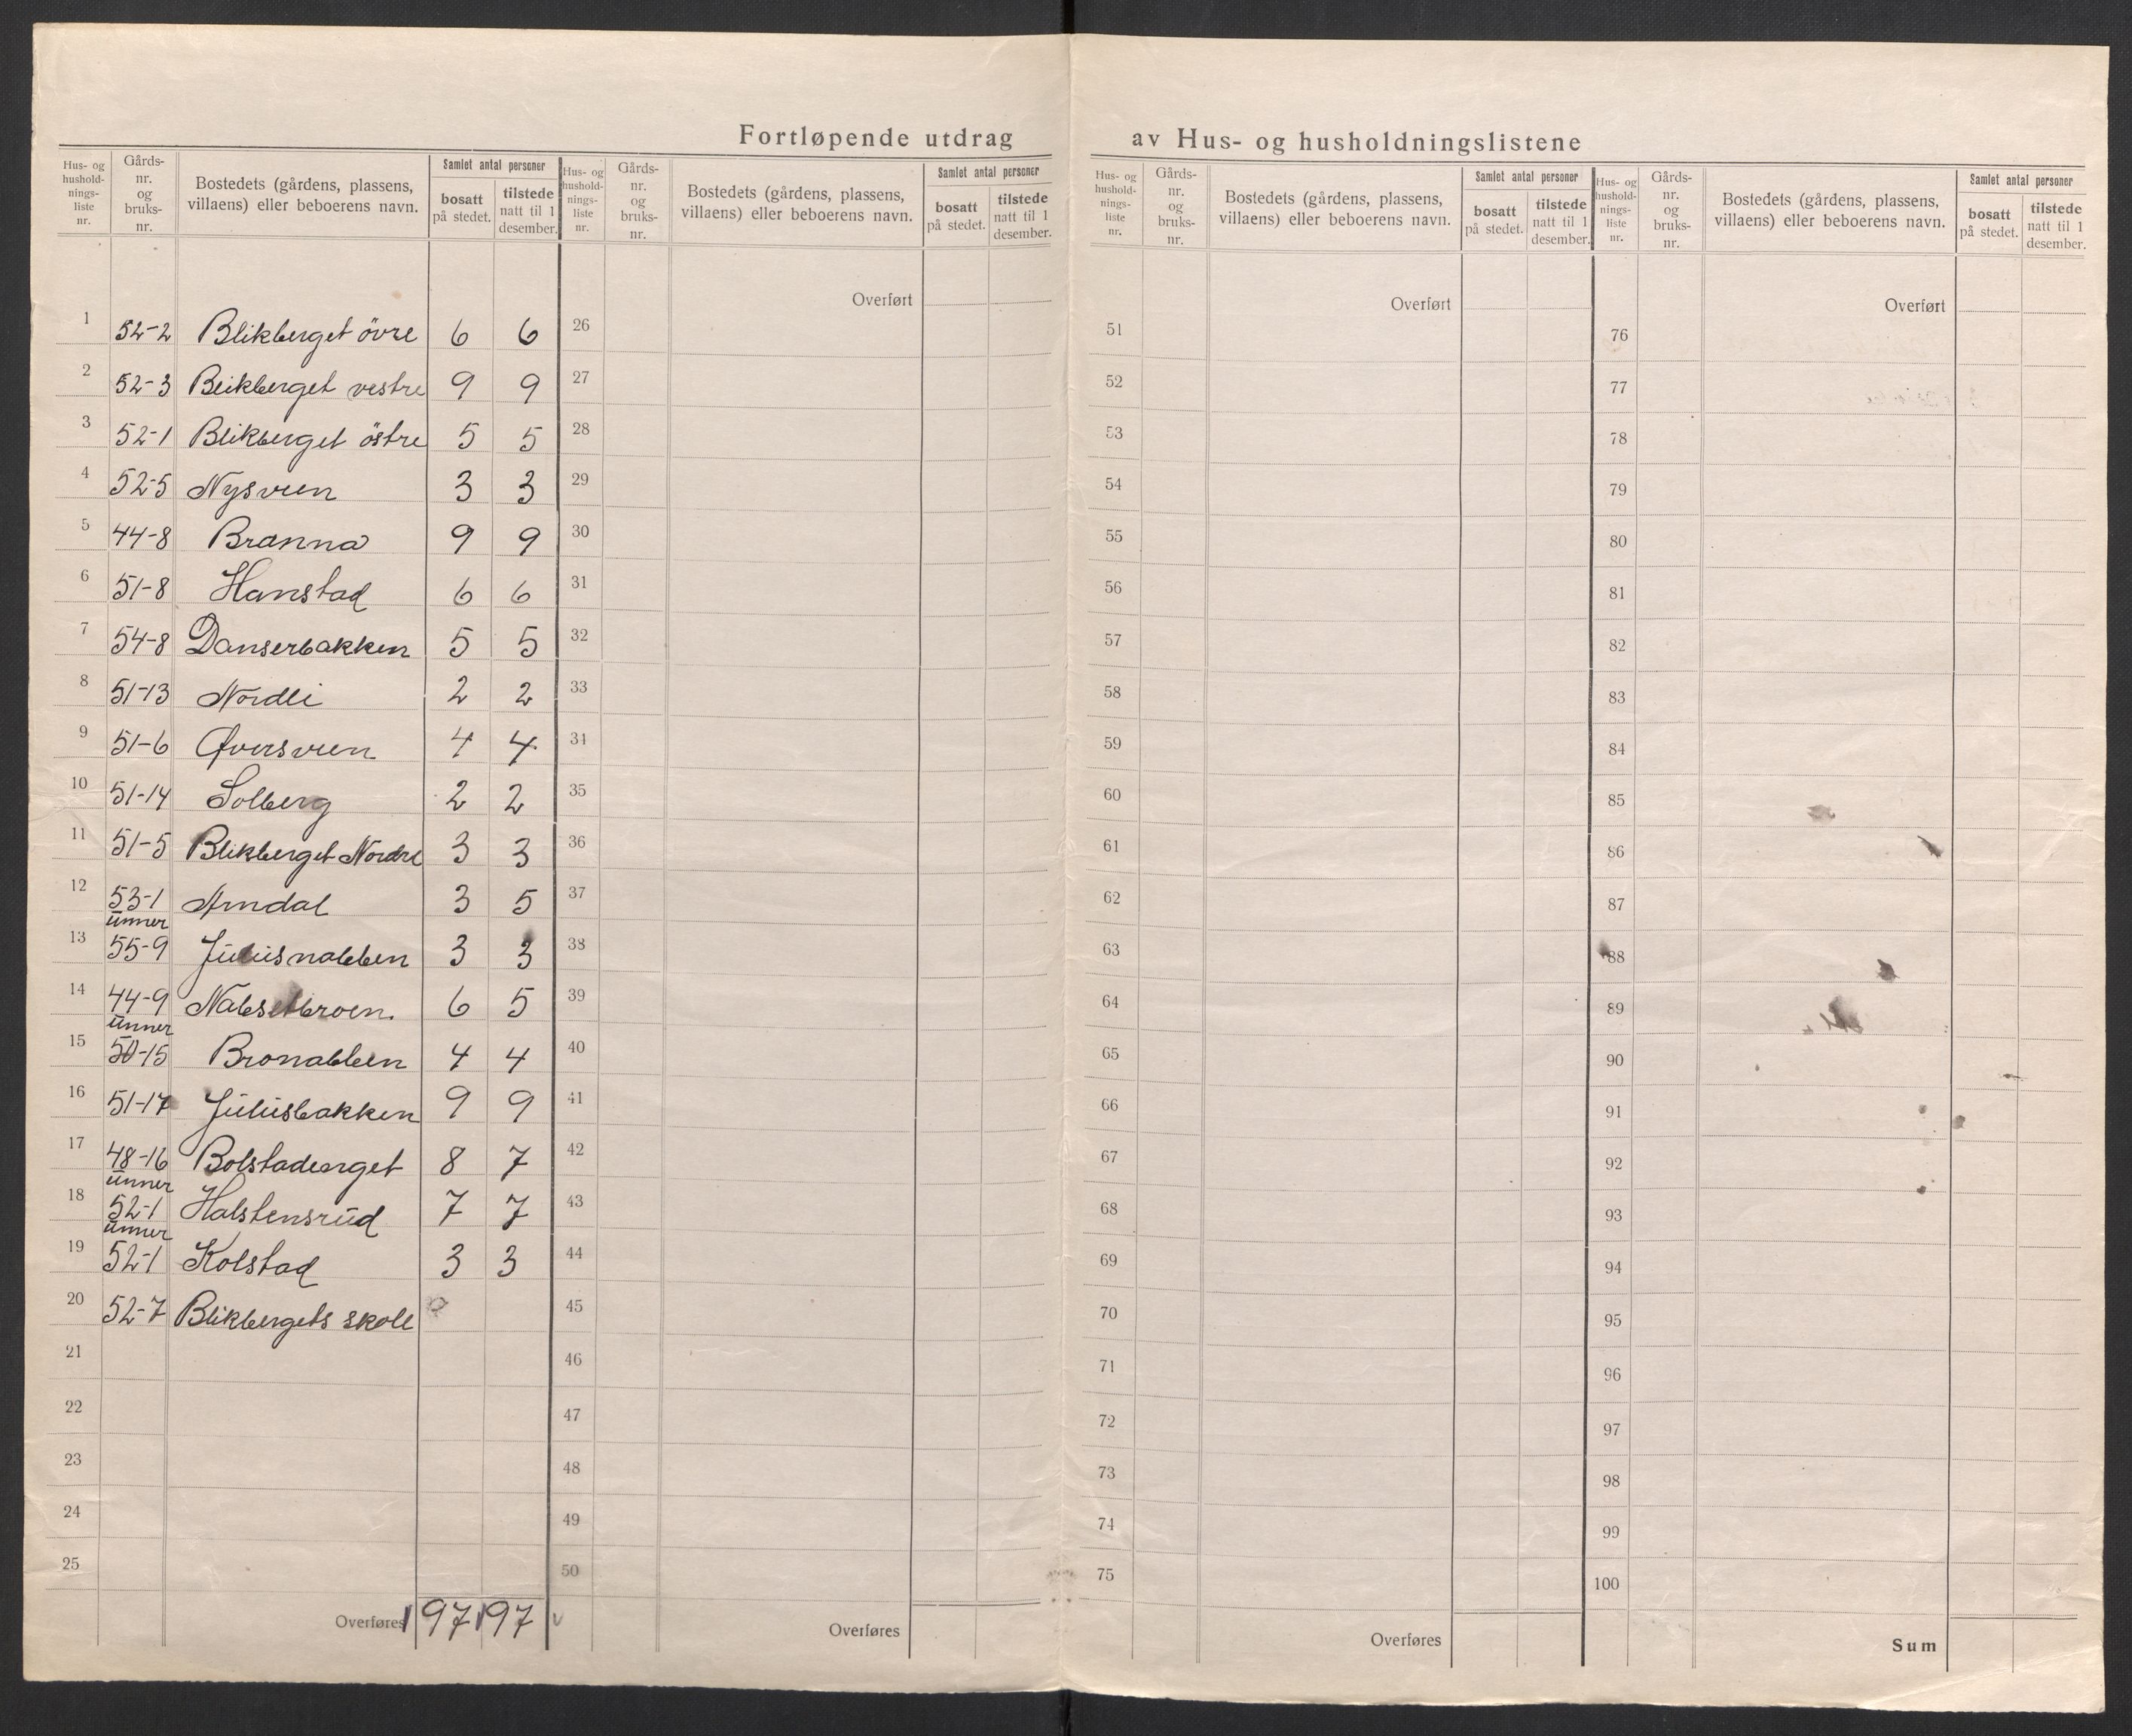 Fortløpende utdrag av Hus- og husholdningslistene
Hus- og husholdnings-liste nr. Gårds-nr. og bruks-nr. Bostedets (gårdens, plassens, villaens) eller beboerens navn. Samlet antal personer bosatt på stedet. tilstede natt til 1 desember.
Hus- og husholdnings-liste nr. Gårds-nr. og bruks-nr. Bostedets (gårdens, plassens, villaens) eller beboerens navn. Samlet antal personer bosatt på stedet. tilstede natt til 1 desember.
Hus- og husholdnings-liste nr. Gårds-nr. og bruks-nr. Bostedets (gårdens, plassens, villaens) eller beboerens navn. Samlet antal personer bosatt på stedet. tilstede natt til 1 desember.
Hus- og husholdnings-liste nr. Gårds-nr. og bruks-nr. Bostedets (gårdens, plassens, villaens) eller beboerens navn. Samlet antal personer bosatt på stedet. tilstede natt til 1 desember.
Overført Overført Overført
1 52-2 Blikberget övre 6 6 26 51 76
2 52-3 Blikberget vestre 9 9 27 52 77
3 52-1 Blikberget östre 5 5 28 53 78
4 52-5 Nysveen 3 3 29 54 79
5 44-8 Brænna 9 9 30 55 80
6 51-8 Hanstad 6 6 31 56 81
7 54-8 Danserbakken 5 5 32 57 82
8 51-13 Nordli 2 2 33 58 83
9 51-6 4 4 34 59 84
10 51-14 Solberg 2 2 35 60 85
11 51-5 Blikberget Nordre 3 3 36 61 86
12 53-1 Arndal 3 5 37 62 87
unner
13 55-9 Juliusnabben 3 3 38 63 88
14 44-9 Nabsetbroen. 6 5 39 64 89
unner
15 50-15 Bronabben 4 4 40 65 90
16 51-17 Juliusbakken 9 9 41 66 91
17 48-16 Bolstadeorget 8 7 42 67 92
unner
18 52-1 Halstensrud 7 7 43 68 93
unner
19 52-1 Kolstad 3 3 44 69 94
20 52-7 Blikbergets skole 45 70 95
21 46 71 96
22 47 72 97
23 48 73 98
24 49 74 99
25 50 75 100
Overføres 97 97 Overføres Overføres Sum